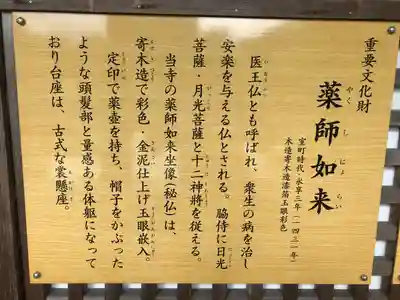 重要文化財
薬師如来
やくしにょらい
室町時代・永享三年(一四三一年)
木造寄木造漆箔玉眼彩色
医王仏とも呼ばれ、衆生の病を治し
安楽を与える仏とされる。脇侍に日光
菩薩・月光菩薩と十二神将を従える。
当寺の薬師如来坐像(秘仏)は、
寄木造で彩色・金泥仕上げ玉眼嵌入。
定印で薬壷を持ち、帽子をかぶった
ような頭髪部と量感ある体躯になって
おり台座は、古式な裳懸座。